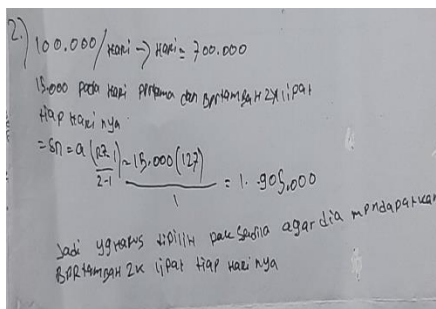 2.) 100.000/Hari → Hari = 700.000
15.000 pada Hari pertama dan Bertambah 2x lipat
tiap Hari nya
= Sn = a (R7-1 / 2-1) = 15.000 (127) / 1 = 1.905.000
Jadi yg Harus dipilih pak Sadila agar dia mendapatkan
Bertambah 2x lipat tiap Hari nya